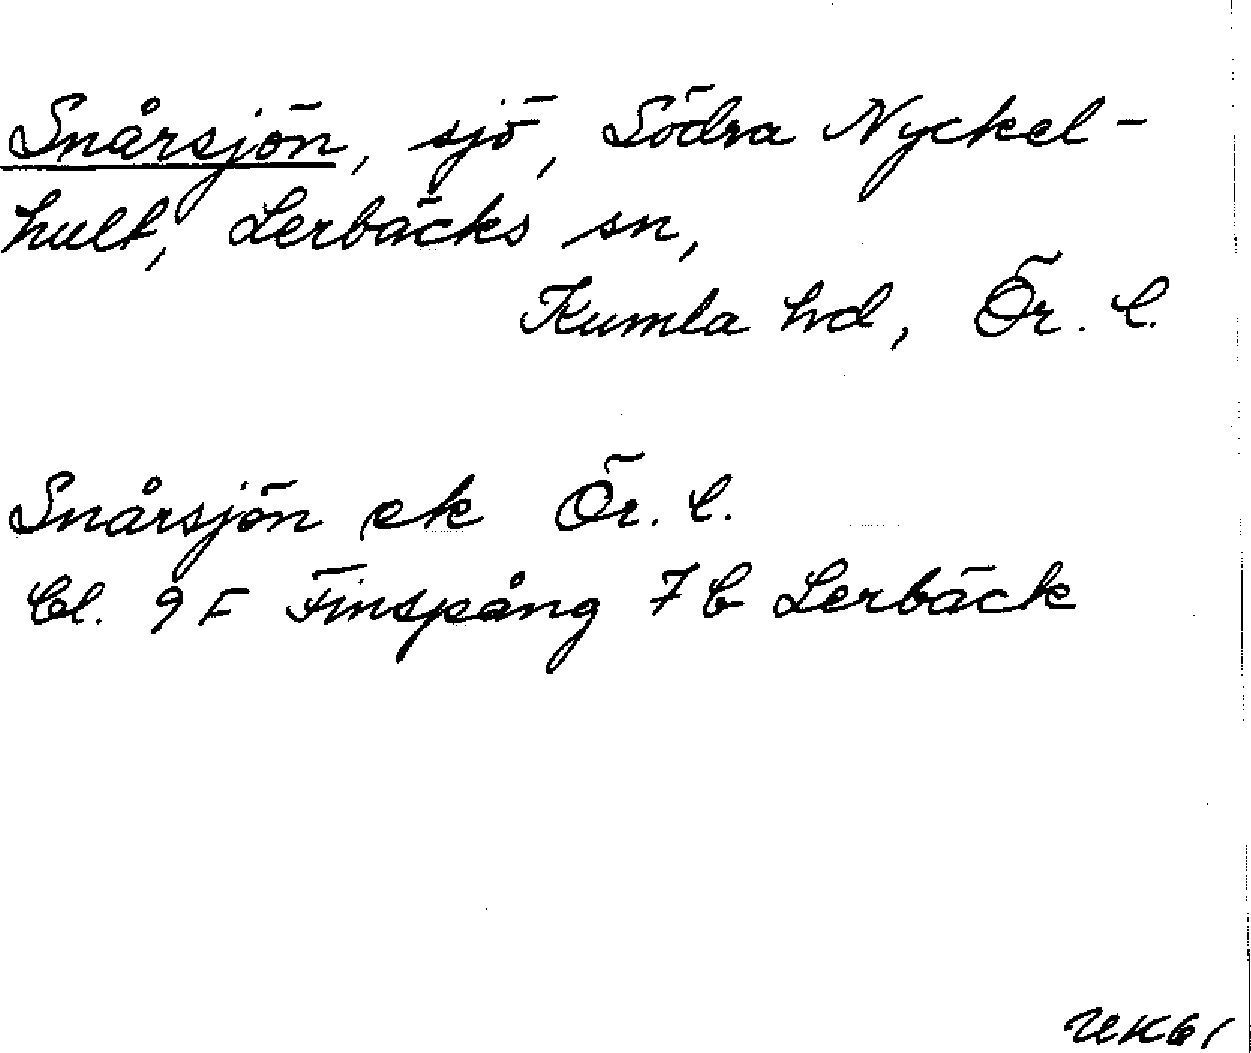 Snårsjön, sjö, Södra Nyckel-
hult, Lerbäcks sn,
Kumla hd, Ör. l.
Snårsjön ek Ör. l.
Bl. 9F Finspång 7b Lerbäck